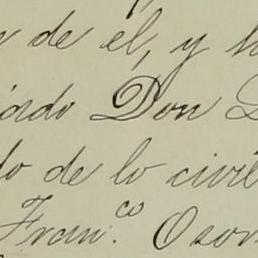 de él, y
Don
do de lo civil
Fran.co Osor